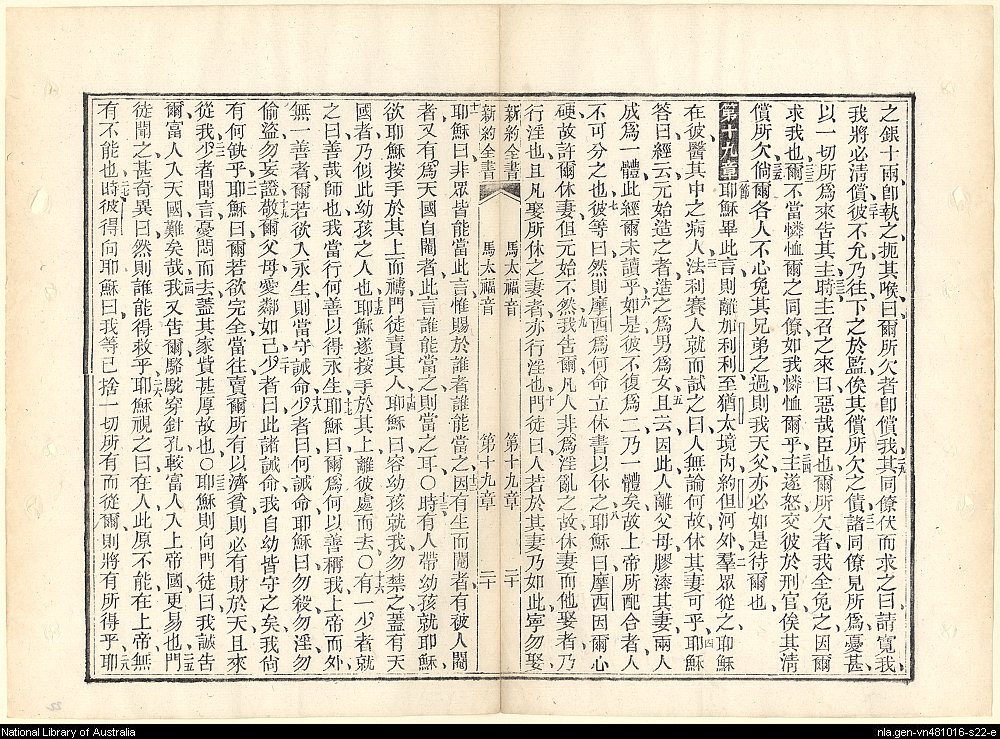 之銀十兩卽執之扼其喉曰爾所欠者卽償我二九其同僚伏而求之曰請寬我
我將必清償三十彼不允乃往下之於監俟其償所欠之債三一諸同僚見所爲憂甚
以一切所爲來告其主三二時主召之來曰惡哉臣也爾所欠者我全免之因爾
求我也三三爾不當憐恤爾之同僚如我憐恤爾乎三四主遂怒交彼於刑官俟其清
償所欠三五倘爾各人不心免其兄弟之過則我天父亦必如是待爾也
第十九章一節耶穌畢此言則離加利利至猶太境內約但河外二羣眾從之耶穌
在彼醫其中之病人三法利賽人就而試之曰人無論何故休其妻可乎四耶穌
答曰經云元始造之者造之爲男爲女五且云因此人離父母膠漆其妻兩人
成爲一體此經爾未讀乎六如是彼不復爲二乃一體矣故上帝所配合者人
不可分之也七彼等曰然則摩西爲何命立休書以休之八耶穌曰摩西因爾心
硬故許爾休妻但元始不然九我告爾凡人非爲淫亂之故休妻而他娶者乃
行淫也且凡娶所休之妻者亦行淫也十門徒曰人若於其妻乃如此寧勿娶
新約全書 馬太福音 第十九章 二十
新約全書 馬太福音 第十九章 二十
十一耶穌曰非眾皆能當此言惟賜於誰者誰能當之十二因有生而閹者有被人閹
者又有爲天國自閹者此言誰能當之則當之耳〇十三時有人帶幼孩就耶穌
欲耶穌按手於其上而禱門徒責其人十四耶穌曰容幼孩就我勿禁之蓋有天
國者乃似此幼孩之人也十五耶穌遂按手於其上離彼處而去〇十六有一少者就
之曰善哉師也我當行何善以得永生十七耶穌曰爾爲何以善稱我上帝而外
無一善者爾若欲入永生則當守誡命十八少者曰何誡命耶穌曰勿殺勿淫勿
偷盜勿妄證十九敬爾父母愛鄰如己二十少者曰此諸誡命我自幼皆守之矣我尙
有何缺乎二一耶穌曰爾若欲完全當往賣爾所有以濟貧則必有財於天且來
從我二二少者聞言憂悶而去蓋其家貲甚厚故也〇二三耶穌則向門徒曰我誠告
爾富人入天國難矣哉二四我又告爾駱駝穿針孔較富人入上帝國更易也二五門
徒聞之甚奇異曰然則誰能得救乎二六耶穌視之曰在人此原不能在上帝無
有不能也二七時彼得向耶穌曰我等已捨一切所有而從爾則將有所得乎二八耶
National Library of Australia
nla.gen-vn481016-s22-e